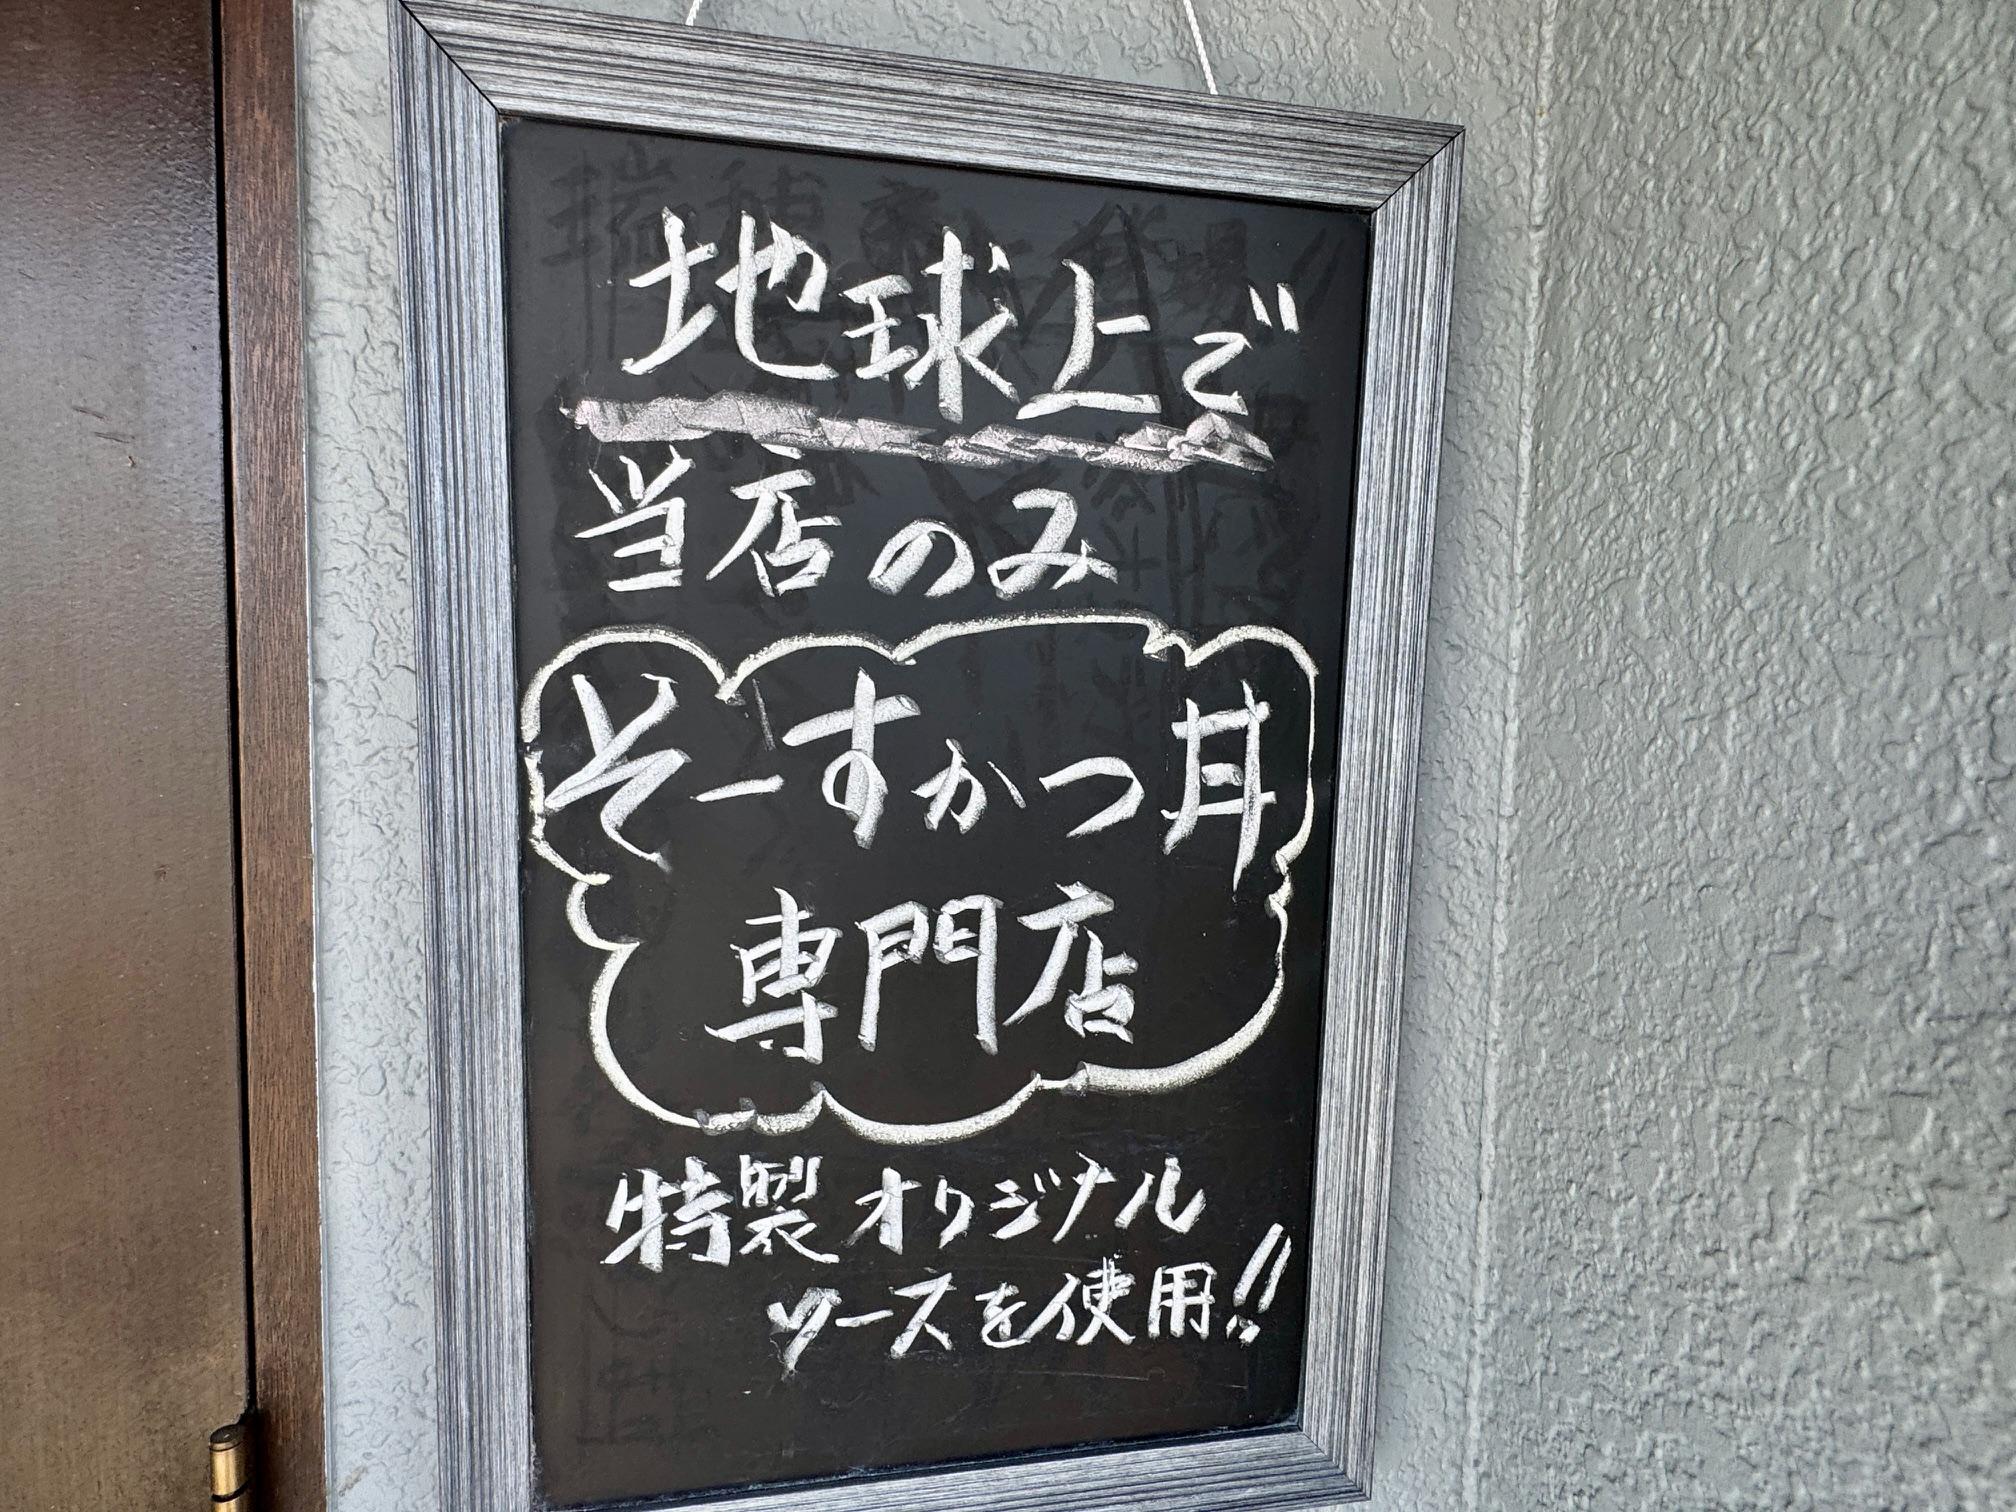 地球上で
当店のみ
そーすかつ丼
専門店
特製オリジナル
ソースを使用!!